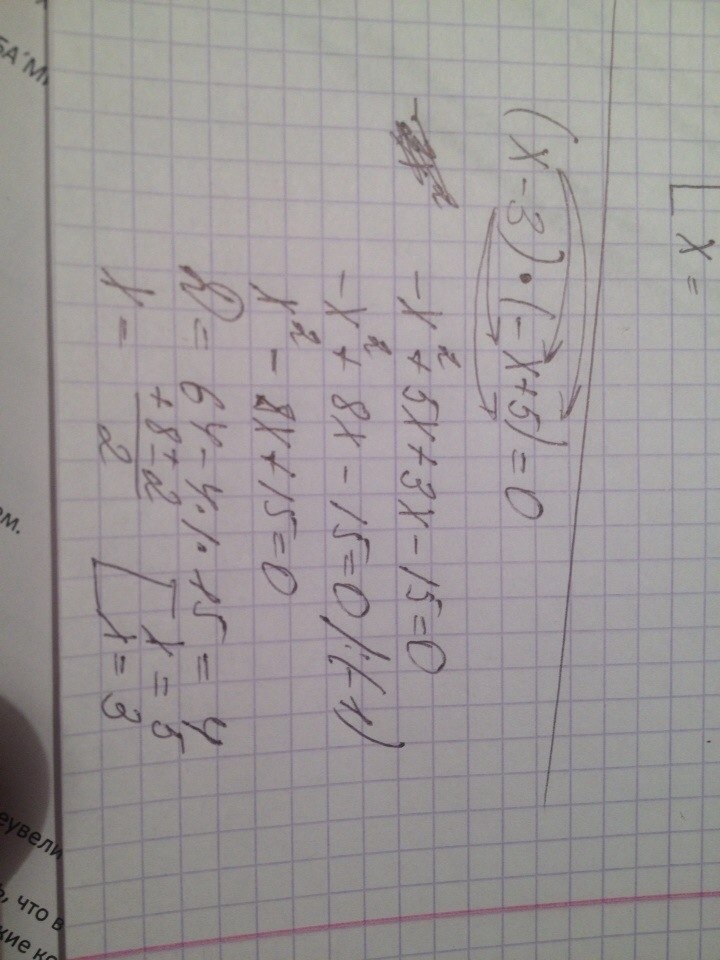 x =
(x-3)·(-x+5)=0
-x²+5x+3x-15=0
-x²+8x-15=0 /:(-1)
x²-8x+15=0
D = 64-4·1·15 = 4
x = +8±2 / 2
[ x = 5
x = 3
БА МИ
ом.
еувели
ь, что в
кие ко